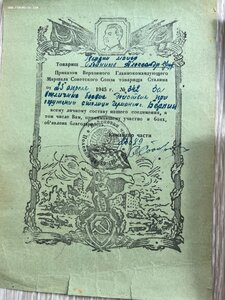 Гвардии майор
Товарищ
Приказом Верховного Главнокомандующего
Маршала Советского Союза товарища Сталина
от 25 апреля 1945 г. № 342 за
отличные боевые действия при
окружении столицы Германии Берлин
всему личному составу нашего соединения, в
том числе Вам, принимавшему участие в боях,
объявлена благодарность.
Командир части